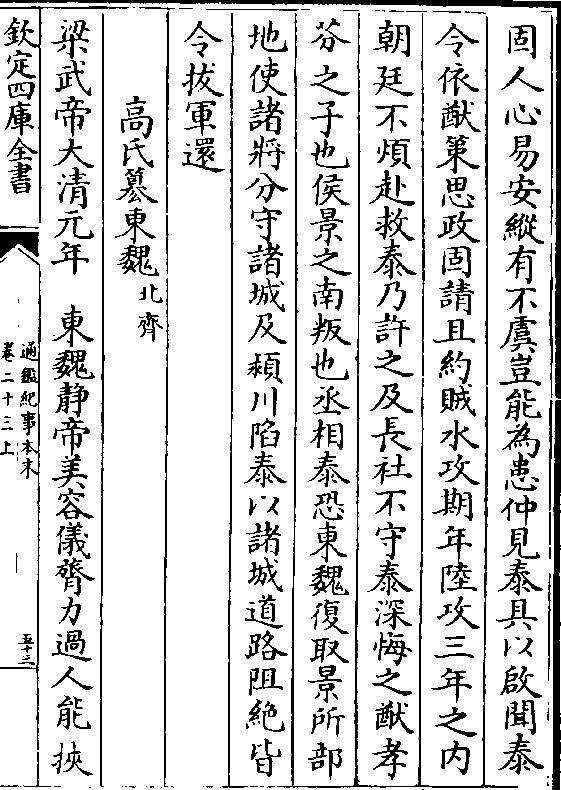 固人心易安縱有不虞豈能為患仲見泰具以啟聞泰
令依猷策思政固請且約賊水攻期年陸攻三年之内
朝廷不煩赴救泰乃許之及長社不守泰深悔之猷孝
芬之子也侯景之南叛也丞相泰恐東魏復取景所部
地使諸將分守諸城及潁川陷泰以諸城道路阻絶皆
令拔軍還
高氏簒東魏北齊
梁武帝大清元年 東魏静帝美容儀膂力過人能挾
欽定四庫全書
通鑑紀事本末
卷二十三上
五十三